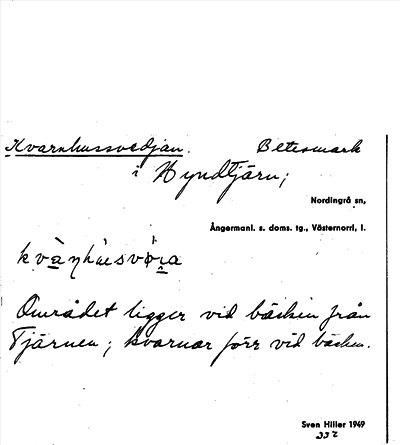 Kvarnhussvedjan. Betesmark
i Hyndtjärn;
Nordingrå sn,
Ångermanl. s. doms. tg., Västernorrl, l.
kvàṇhùsvǿṛa
Området ligger vid bäcken från
Tjärnen; kvarnar förr vid bäcken.
Sven Hiller 1949
332